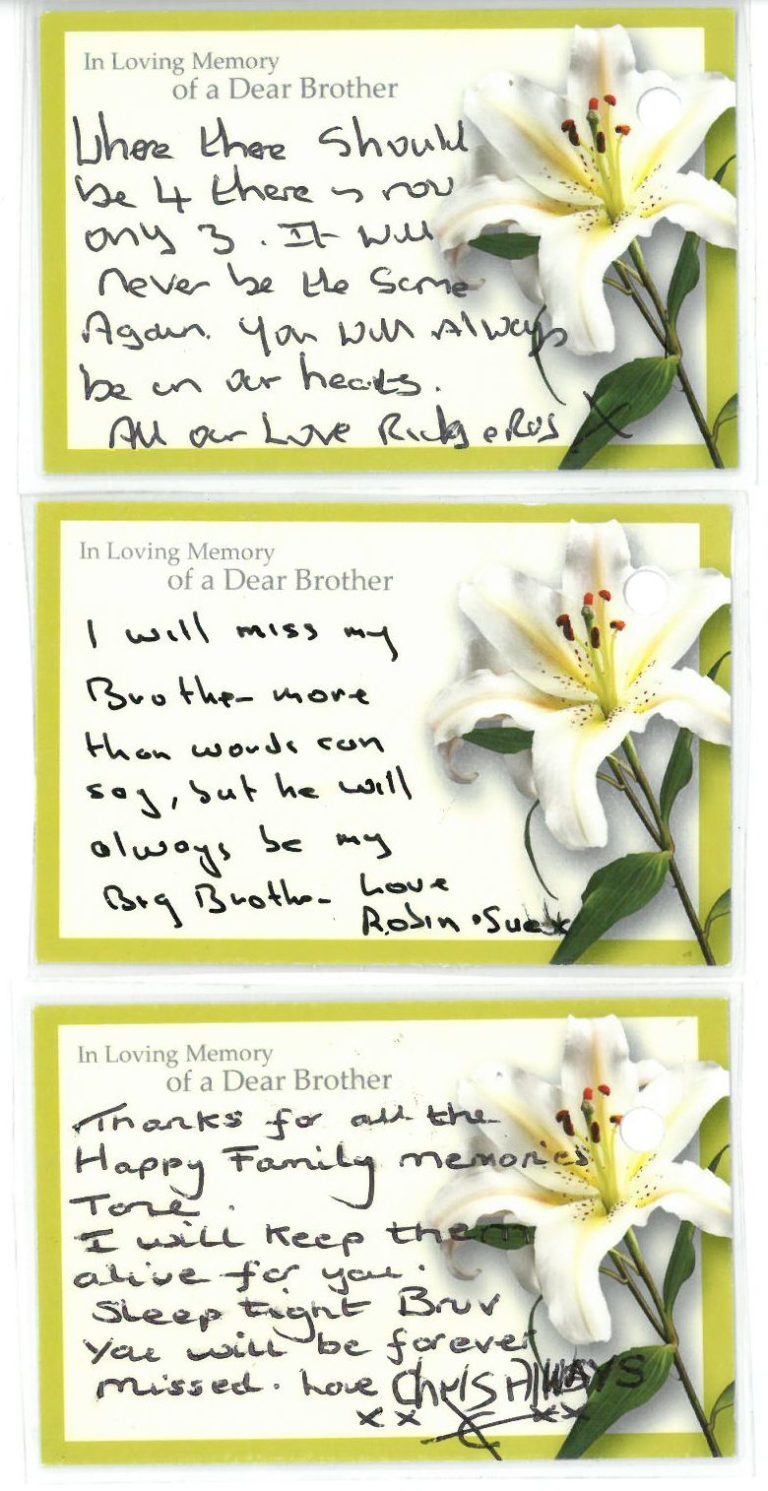 In Loving Memory
of a Dear Brother
Where there should
be 4 there is now
only 3. It will
never be the Same
Again. You will Always
be in our hearts.
All our Love Ricky & Ros X
In Loving Memory
of a Dear Brother
I will miss my
Brother more
than words can
say, but he will
always be my
Big Brother Love
Robin & Sue x
In Loving Memory
of a Dear Brother
Thanks for all the
Happy Family memories
Tone.
I will keep them
alive for you.
Sleep tight Bruv
You will be forever
missed. Love Chris AlWAYS
xx xx